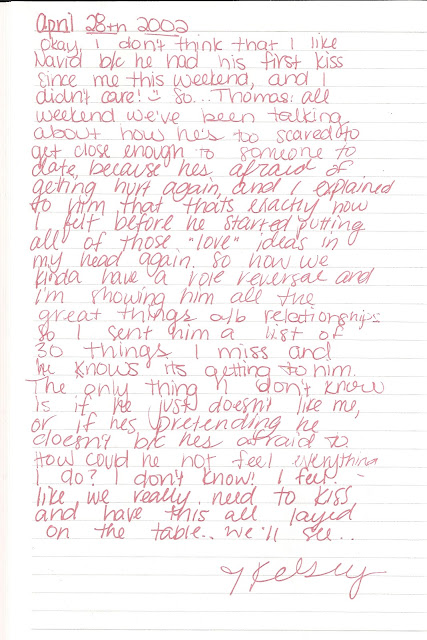 April 28th 2002
Okay, I don't think that I like
Navid b/c he had his first kiss
since me this weekend, and I
didn't care! :) So... Thomas: all
weekend we've been talking
about how he's too scared to
get close enough to someone to
date, because hes afraid of
getting hurt again, and I explained
to him that thats exactly how
I felt before he started putting
all of those "love" ideas in
my head again. So now we
kinda have a role reversal and
I'm showing him all the
great things a/b relationships
so I sent him a list of
30 things I miss and
he knows its getting to him.
The only thing I don't know
is if he just doesn't like me,
or if hes pretending he
doesn't b/c hes afraid to.
How could he not feel everything
I do? I don't know! I feel
like we really need to kiss
and have this all layed
on the table.. we'll see..
Kelsey